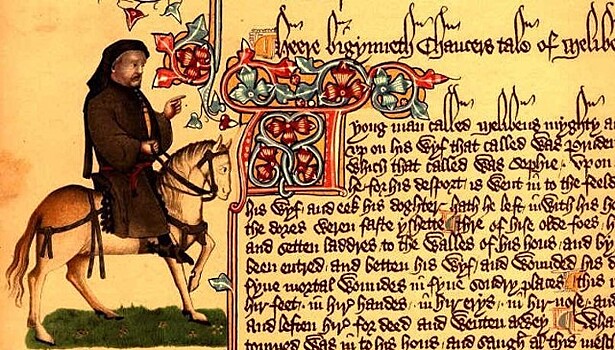 Heere bigynneth Chaucers tale of Melibe
A yong man called Melibeus myghty a
vp on his wyf that called was Pruden
which that called was Sophie / Vpon
he for his desport is went in to the feeld
his wyf / and eek his doghter / hath he left in with his h
the dores weren faste yshette / thre of hise olde foes / h
and setten laddres to the walles of his hous / and by
been entred / and betten his wyf / and wounded his d
fyue mortal woundes in fyue sondry places / this i
hir feet / in hir handes / in hir erys / in hir nose / and
and leften hir for deed and wenten awey / Whan
torned was in to his hous / and saugh al this mesch